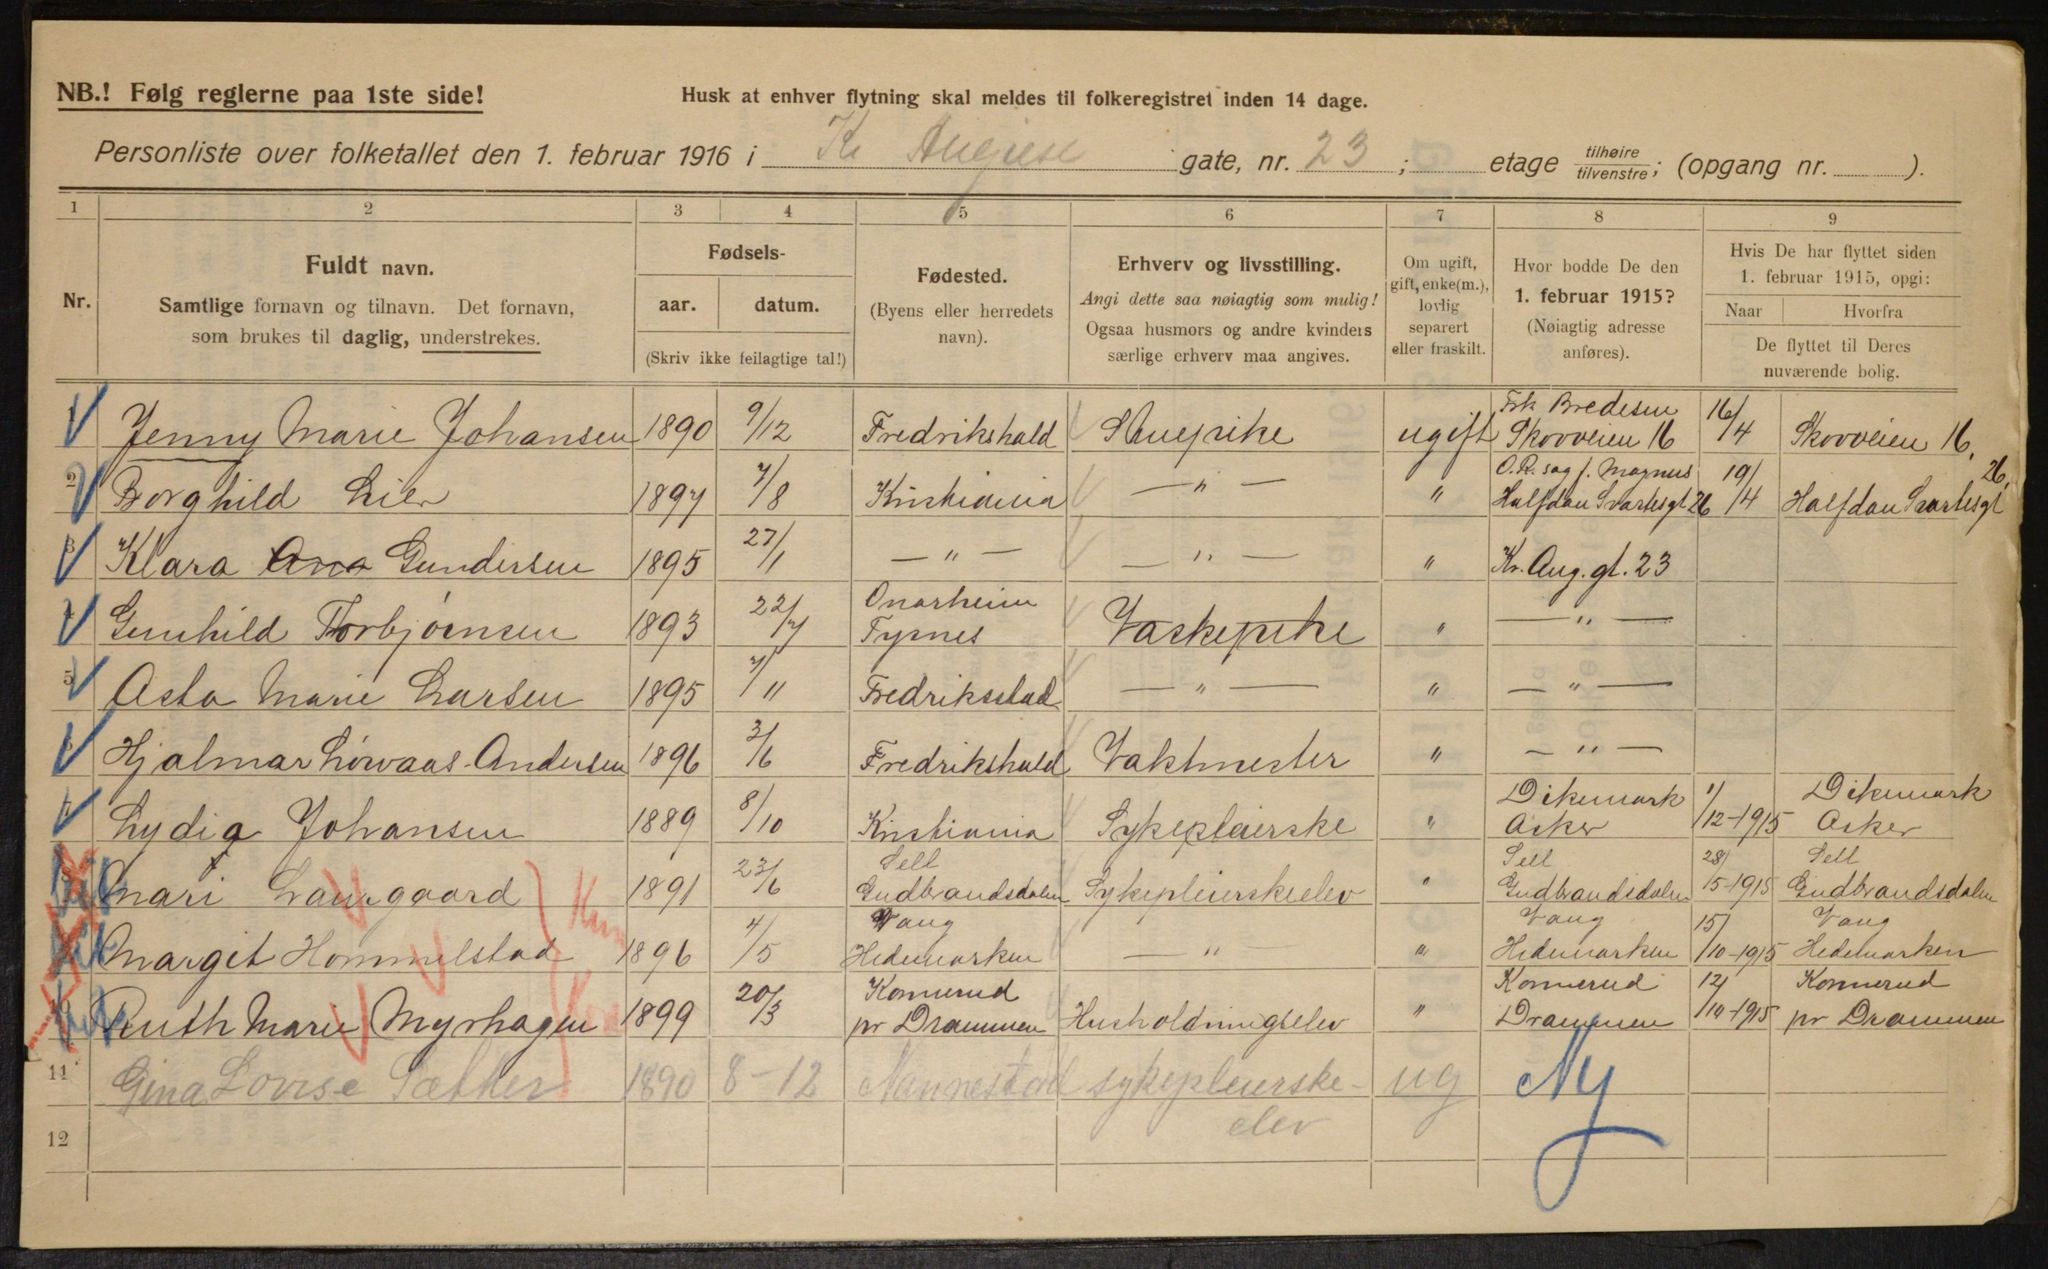 NB.! Følg reglerne paa 1ste side!
Husk at enhver flytning skal meldes til folkeregistret inden 14 dage.
Personliste over folketallet den 1. februar 1916 i Kr Augusts gate, nr. 23; etage tilhøire/tilvenstre; (opgang nr. ).
1 2 3 4 5 6 7 8 9
Nr.
Fuldt navn.
Samtlige fornavn og tilnavn. Det fornavn,
som brukes til daglig, understrekes.
Fødsels-
aar. datum.
(Skriv ikke feilagtige tal!)
Fødested.
(Byens eller herredets
navn).
Erhverv og livsstilling.
Angi dette saa nøiagtig som mulig!
Ogsaa husmors og andre kvinders
særlige erhverv maa angives.
Om ugift,
gift, enke(m.),
lovlig
separert
eller fraskilt.
Hvor bodde De den
1. februar 1915?
(Nøiagtig adresse
anføres).
Hvis De har flyttet siden
1. februar 1915, opgi:
Naar Hvorfra
De flyttet til Deres
nuværende bolig.
1 Jenny Marie Johansen 1890 9/12 Fredrikshald Stuepike ugift Frk Bredesen Skovveien 16 16/4 Skovveien 16,
2 Borghild Lier 1897 7/8 Kristiania — " — " O.R.sag f. Magnus Halfdan Svartesgt 26 19/4 Halfdan Svartesgt 26,
3 Klara Ana Gundersen 1895 27/1 — " — — " — " Kr. Aug. gt. 23
4 Gunhild Torbjørnsen 1893 22/7 Onarheim Tysnes Vaskepike " — " —
5 Asta Marie Larsen 1895 7/11 Fredriksstad — " — " — " —
6 Hjalmar Løwaas-Andersen 1896 3/6 Fredrikshald Vaktmester " — " —
7 Lydia Johansen 1889 8/10 Kristiania Sykepleierske " Dikemark Asker 1/12-1915 Dikemark Asker
8 Mari Laurgaard 1891 23/6 Sell Gudbrandsdalen Sykepleierskeelev " Sell Gudbrandsdalen 28/5-1915 Sell Gudbrandsdalen
9 Margit Hommelstad 1896 4/5 Vang Hedemarken — " — " Vang Hedemarken 15/10-1915 Vang Hedemarken
10 Ruth Marie Myrhagen 1899 20/3 Konnerud pr Drammen Husholdningselev " Konnerud Drammen 12/10-1915 Konnerud pr Drammen
11 Gina Lovise Sæther 1890 8-12 Nannestad sykepleierske- ug Ny
elev
12